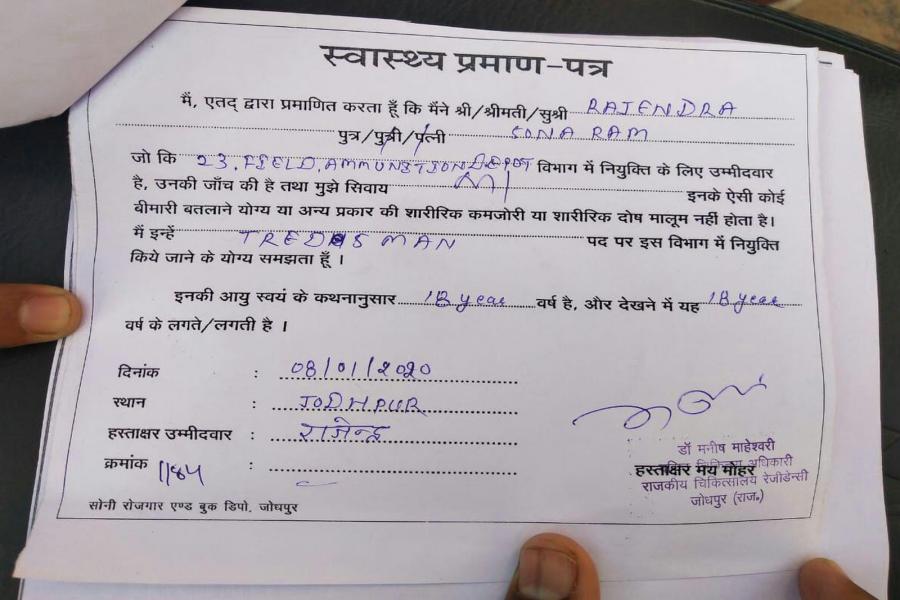 स्वास्थ्य प्रमाण-पत्र
मैं, एतद् द्वारा प्रमाणित करता हूँ कि मैंने श्री/श्रीमती/सुश्री RAJENDRA
पुत्र/पुत्री/पत्नी SONA RAM
जो कि 23. FIELD. AMMUNITION DEPOT विभाग में नियुक्ति के लिए उम्मीदवार
है, उनकी जाँच की है तथा मुझे सिवाय इनके ऐसी कोई
बीमारी बतलाने योग्य या अन्य प्रकार की शारीरिक कमजोरी या शारीरिक दोष मालूम नहीं होता है।
मैं इन्हें TREDSMAN पद पर इस विभाग में नियुक्ति
किये जाने के योग्य समझता हूँ ।
इनकी आयु स्वयं के कथनानुसार 18 year वर्ष है, और देखने में यह 18 year
वर्ष के लगते/लगती है ।
दिनांक : 08/01/2020
स्थान : JODHPUR
हस्ताक्षर उम्मीदवार : राजेन्द्र
क्रमांक 1184 :
डॉ मनीष माहेश्वरी
अधिकारी
हस्ताक्षर मय मोहर
राजकीय चिकित्सालय रेजीडेन्सी
जोधपुर (राज.)
सोनी रोजगार एण्ड बुक डिपो, जोधपुर